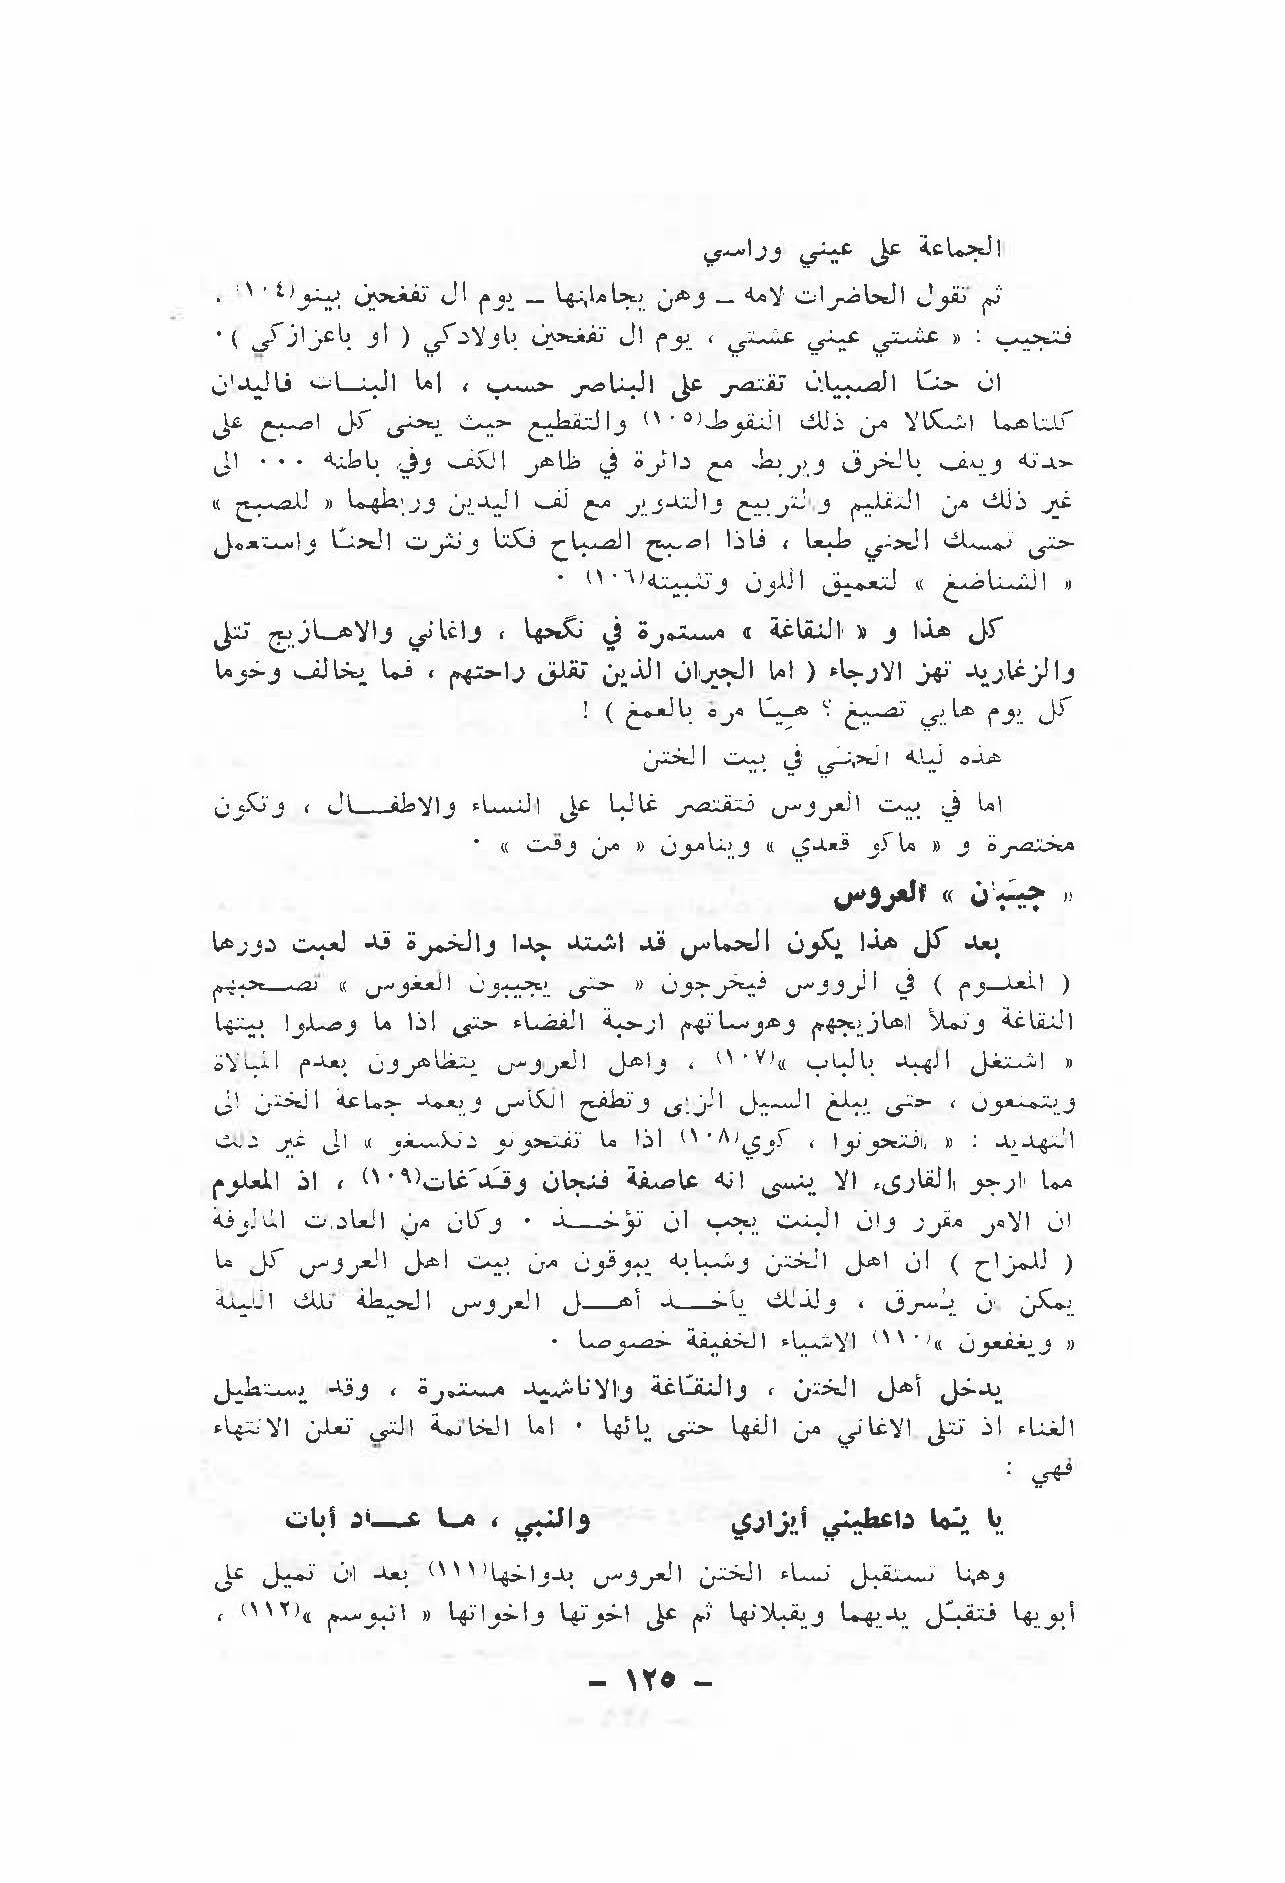 الجماعة على عيني وراسي
ثم تقول الحاضرات لامه ـ وهن يجاملنها ـ يوم ال تفغحين بينو(١٠٤) ،
فتجيب : « عشتي عيني عشتي ، يوم ال تفغحين باولادكي ( او باعزازكي ) ·
ان حنّا الصبيان تقتصر على البناصر حسب ، اما البنات فاليدان
كلتاهما اشكالا من ذلك النقوط(١٠٥) والتقطيع حيث يحنى كل اصبع على
حدته ويلف بالخرق ويربط مع دائرة في ظاهر الكف وفي باطنه ··· الى
غير ذلك من التقليم والتربيع والتدوير مع لف اليدين وربطهما « للصبح »
حتى تمسك الحني طبعا ، فاذا اصبح الصباح فكتا ونثرت الحنّا واستعمل
« الشناضغ » لتعميق اللون وتثبيته(١٠٦) ·
كل هذا و « النقاغة » مستمرة في نگحها ، واغاني والاهازيج تتلى
والزغاريد تهز الارجاء ( اما الجيران الذين تقلق راحتهم ، فما يخالف وخوما
كل يوم هايي تصيغ ؟ هيّا مرة بالعمغ ) !
هذه ليلة الحني في بيت الختن
اما في بيت العروس فتقتصر غالبا على النساء والاطفال ، وتكون
مختصرة و « ماكو قعدي » وينامون « من وقت » ·
« جيبان » العروس
بعد كل هذا يكون الحماس قد اشتد جدا والخمرة قد لعبت دورها
( المعلوم ) في الرووس فيخرجون « حتى يجيبون العغوس » تصحبهم
النقاغة وتملأ اهازيجهم وهوساتهم ارحبة الفضاء حتى اذا ما وصلوا بيتها
« اشتغل الهبد بالباب »(١٠٧) ، واهل العروس يتظاهرون بعدم المبالاة
ويتمنعون ، حتى يبلغ السيل الزبى وتطفح الكأس ويعمد جماعة الختن الى
التهديد : « افتحونوا ، كوي(١٠٨) اذا ما تفتحونو دنكسغو » الى غير ذلك
مما ارجو القارىء الا ينسى انه عاصفة فنجان وقدغات(١٠٩) ، اذ المعلوم
ان الامر مقرر وان البنت يجب ان تؤخذ · وكان من العادات المالوفة
( للمزاح ) ان اهل الختن وشبابه يبوقون من بيت اهل العروس كل ما
يمكن ان يسرق ، ولذلك يأخذ أهل العروس الحيطة تلك الليلة
« ويغفعون »(١١٠) الاشياء الخفيفة خصوصا ·
يدخل أهل الختن ، والنقّاغة والاناشيد مستمرة ، وقد يستطيل
الغناء اذ تتلى الاغاني من الفها حتى يائها · اما الخاتمة التي تعلن الانتهاء
فهي :
يا يمّا داعطيني أيزاري والنبي ، ما عاد أبات
وهنا تستقبل نساء الختن العروس بدواخها(١١١) بعد ان تميل على
أبويها فتقبّل يديهما ويقبلانها ثم على اخوتها واخواتها « انبوسم »(١١٢) ،
– ١٢٥ –